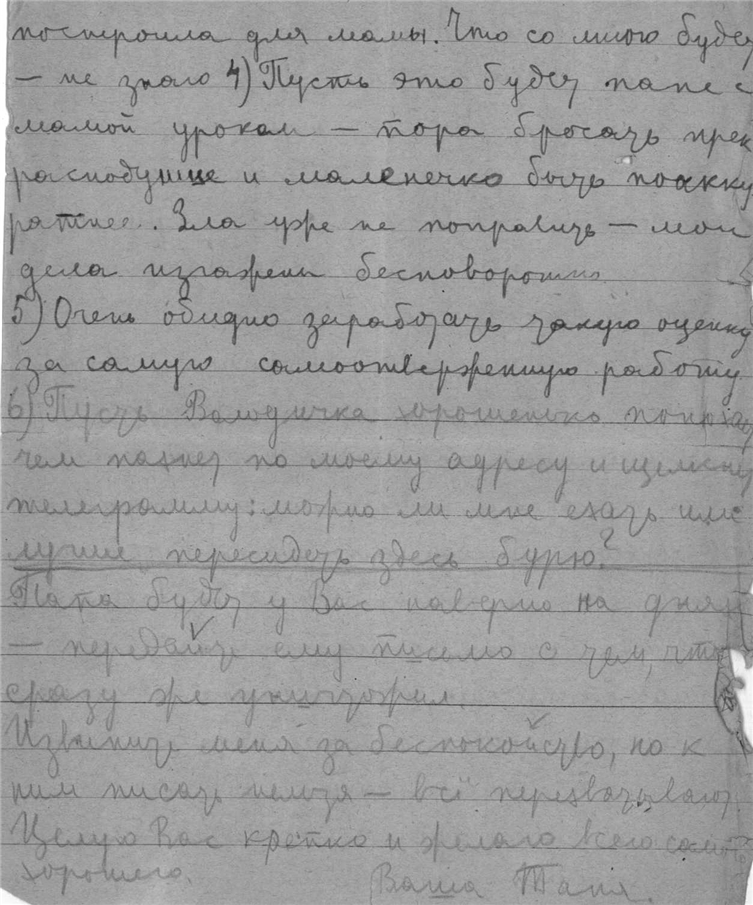 построила для мамы. Что со мною будет
— не знаю 4) Пусть это будет папе с
мамой уроком — пора бросать прек
раснодушие и маленечко быть поакку
ратнее. Зла уже не поправить — мои
дела изгажены бесповоротно
5) Очень обидно заработать такую оценку
за самую самоотверженную работу
6) Пусть Володичка хорошенько понюхает
чем пахнет по моему адресу и щелкнет
телеграмму: можно ли мне ехать или
лучше пересидеть здесь бурю?
Папа будет у Вас наверно на днях
— передайте ему письмо с тем, чтоб
сразу же уничтожил.
Извините меня за беспокойство, но к
ним писать нельзя — всё перехватывают
Целую Вас крепко и желаю всего самого
хорошего. Ваша Таня.